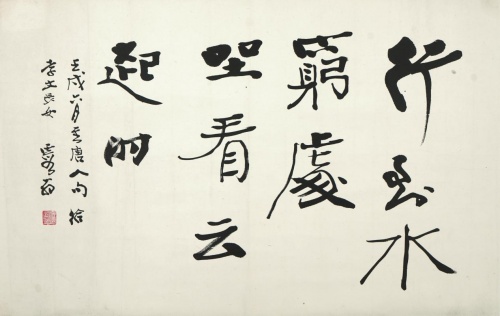 行到水
窮處
坐看云
起時
壬戌六月書唐人句給
李文